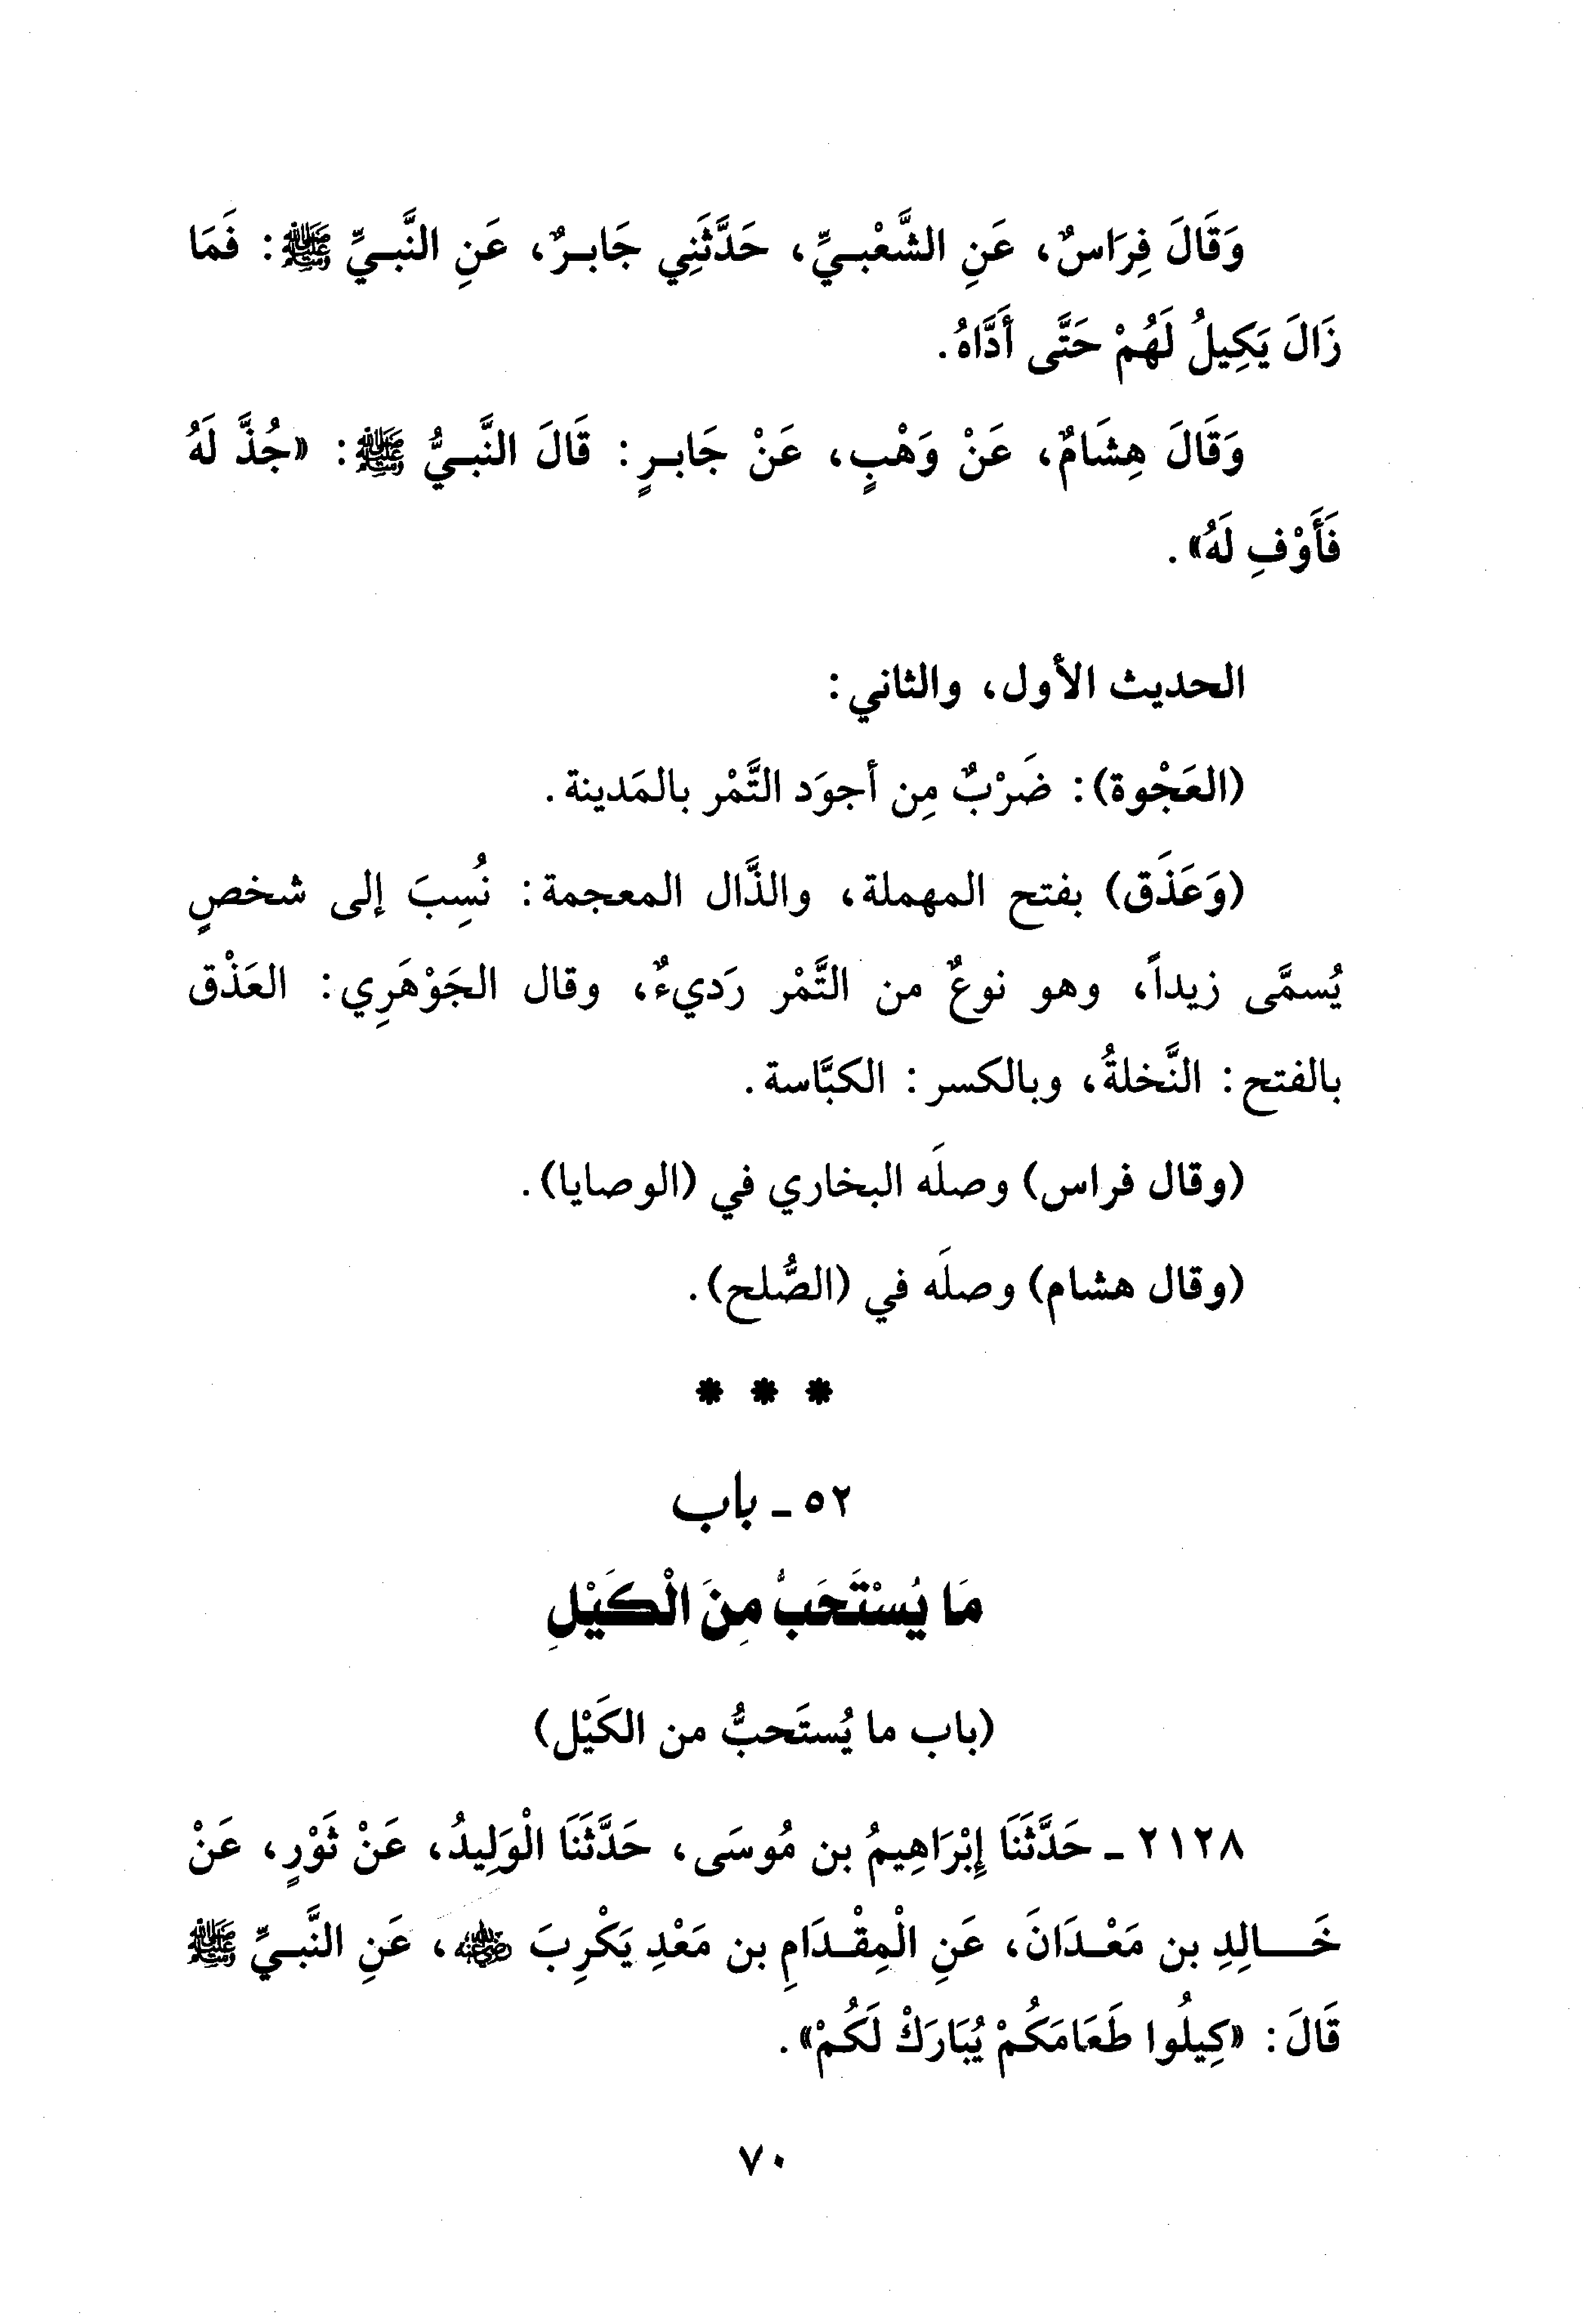 وَقَالَ فِرَاسٌ، عَنِ الشَّعْبِيِّ، حَدَّثَنِي جَابِرٌ، عَنِ النَّبِيِّ ﷺ: فَمَا
زَالَ يَكِيلُ لَهُمْ حَتَّى أَدَّاهُ.
وَقَالَ هِشَامٌ، عَنْ وَهْبٍ، عَنْ جَابِرٍ: قَالَ النَّبِيُّ ﷺ: «جُذَّ لَهُ
فَأَوْفِ لَهُ».
الحديث الأول، والثاني:
(العَجْوة): ضَرْبٌ مِن أجوَد التَّمْر بالمَدينة.
(وَعَذَق) بفتح المهملة، والذَّال المعجمة: نُسِبَ إلى شخصٍ
يُسمَّى زيداً، وهو نوعٌ من التَّمْر رَديءٌ، وقال الجَوْهَرِي: العَذْق
بالفتح: النَّخلةُ، وبالكسر: الكبَّاسة.
(وقال فراس) وصلَه البخاري في (الوصايا).
(وقال هشام) وصلَه في (الصُّلح).
* * *
٥٢ - باب
مَا يُسْتَحَبُّ مِنَ الْكَيْلِ
(باب ما يُستَحبُّ من الكَيْل)
٢١٢٨ - حَدَّثَنَا إِبْرَاهِيمُ بن مُوسَى، حَدَّثَنَا الْوَلِيدُ، عَنْ ثَوْرٍ، عَنْ
خَالِدِ بن مَعْدَانَ، عَنِ الْمِقْدَامِ بن مَعْدِ يَكْرِبَ رضي الله عنه، عَنِ النَّبِيِّ ﷺ
قَالَ: «كِيلُوا طَعَامَكُمْ يُبَارَكْ لَكُمْ».
٧٠